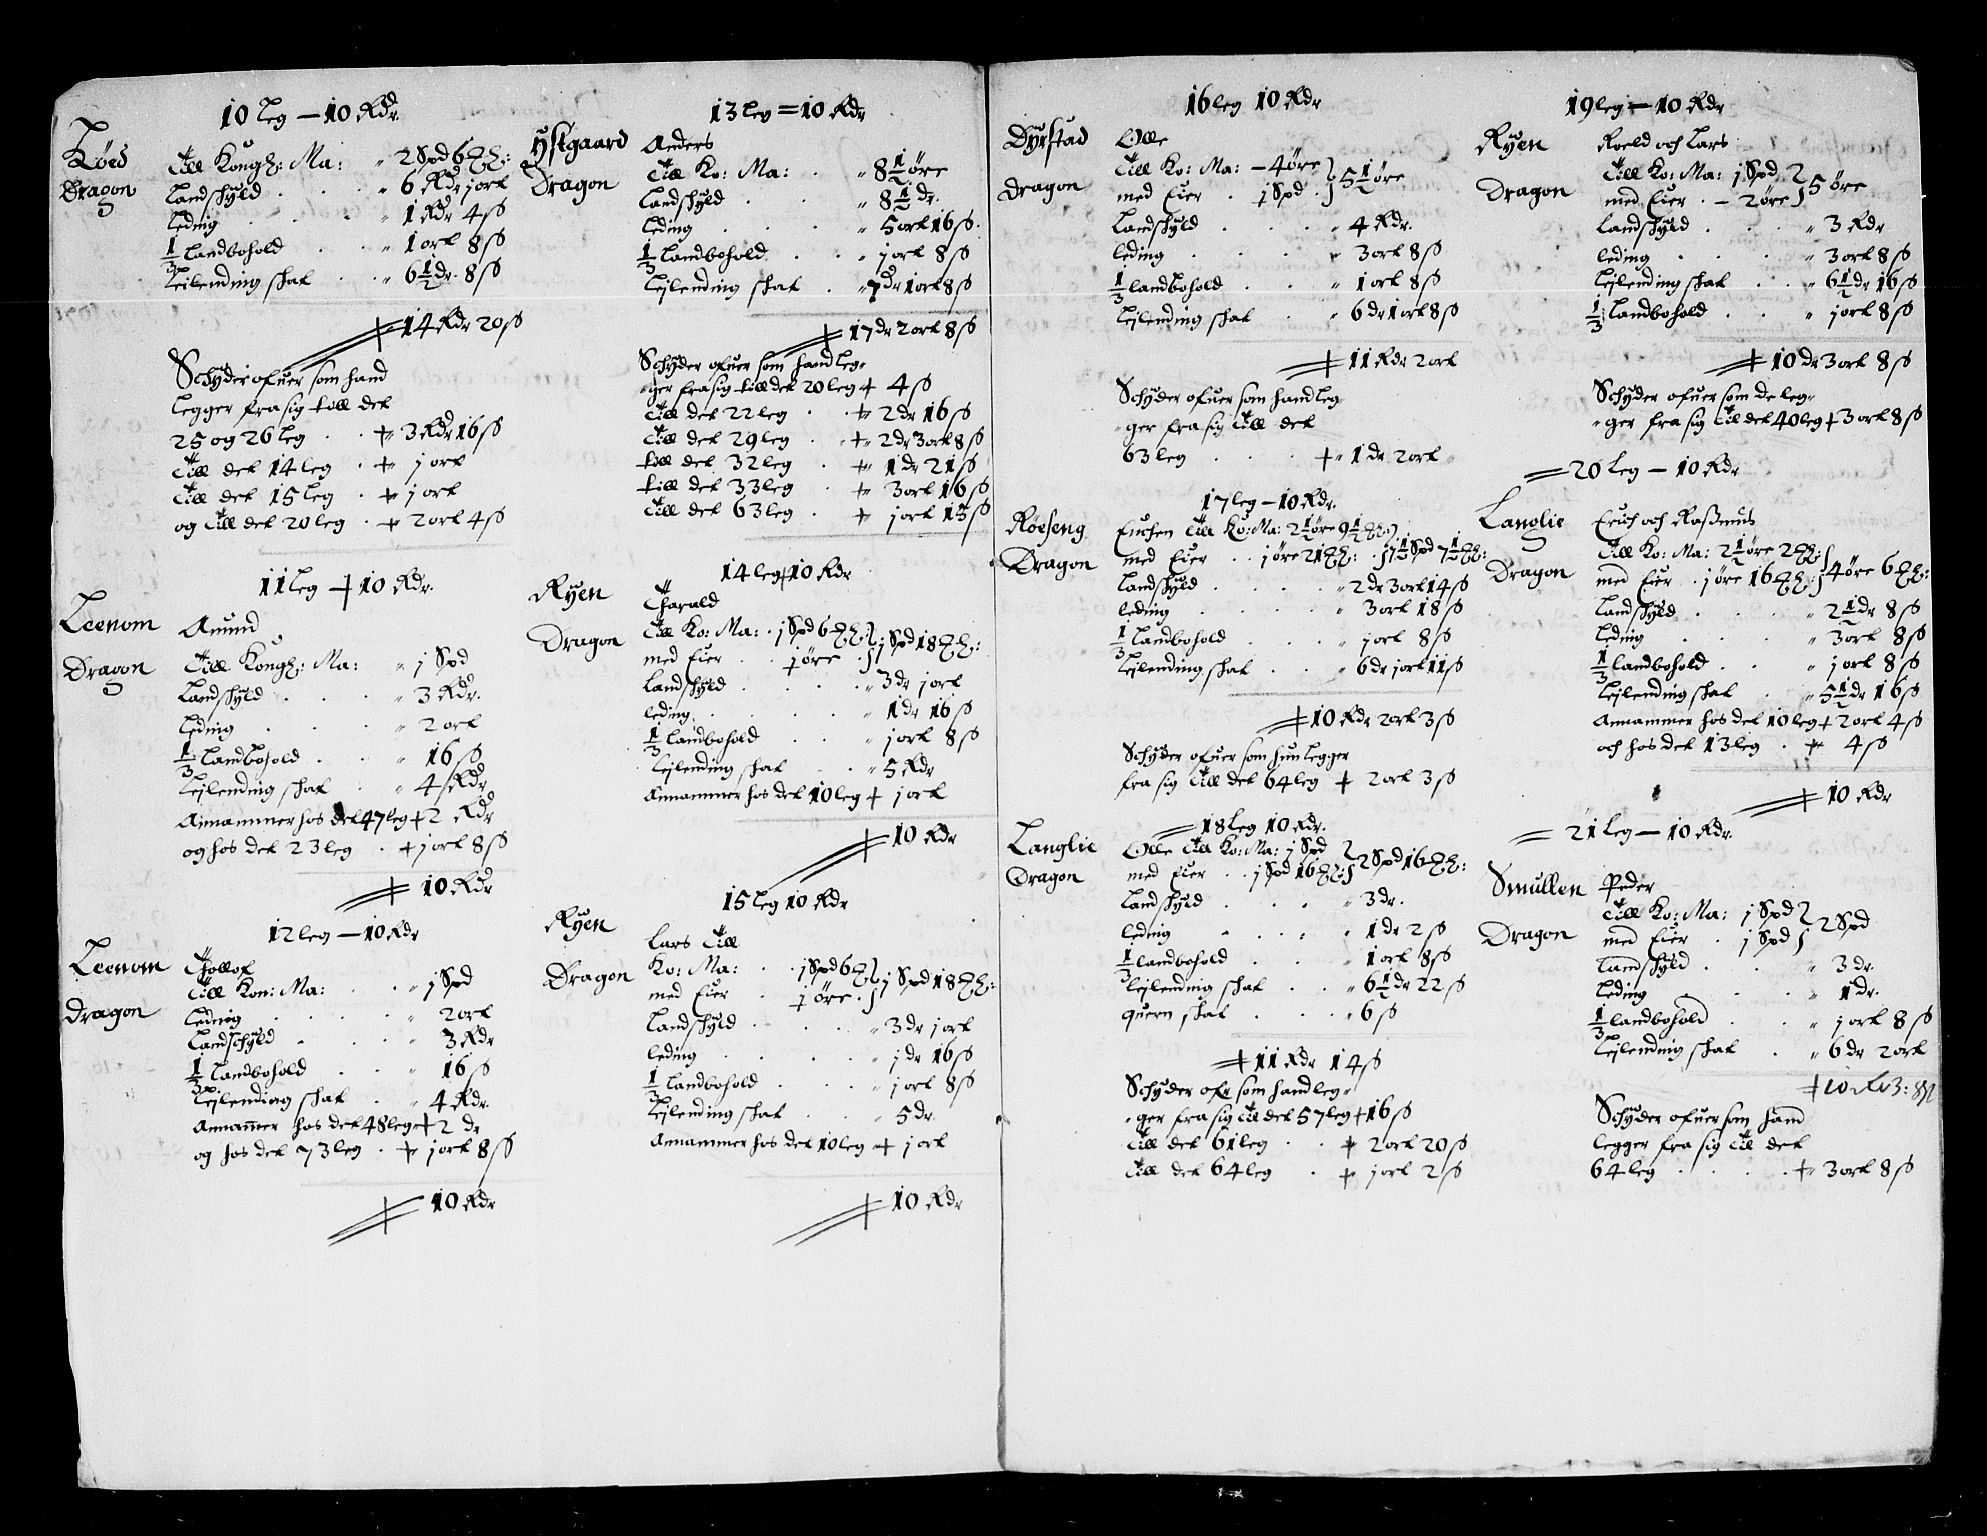 10 Leg — 10 Rdr.
Røed
Dragon
Till Kongh: Ma: " 2 Spd 6 ℔:
Landskyld . . " 6 Rdr j ort
Leding . . " 1 Rdr 4 ß
1/3 Landbohold . . " 1 ort 8 ß
Leilending skat . . " 6½ dr. 8 ß
14 Rdr 20 ß
Schyder ofuer som hand
legger fra sig till det
25 og 26 leg . . 3 Rdr 16 ß
Till det 14 leg . j ort
Till det 15 leg . j ort
og Till det 20 leg . 2 ort 4 ß
11 Leg + 10 Rdr.
Leenom
Dragon
Amund
Till Kongh: Ma: " j Spd
Landskyld . . " 3 Rdr.
Leding . . " 2 ort
1/3 Landbohold . . " 16 ß
Leilending skat . " 4 Rdr
Annammer hos det 47 leg + 2 Rdr
og hos det 23 leg . + j ort 8 ß
10 Rdr
12 leg — 10 Rdr
Leenom
Dragon
Tollof
Till Kon: Ma: . . " j Spd
Leding . . " 2 ort
Landschyld . . " 3 Rdr
1/3 Landbohold . . " 16 ß
Leilending skat . " 4 Rdr.
Annammer hos det 48 leg + 2 dr
og hos det 73 leg . + j ort 8 ß
10 Rdr
13 leg = 10 Rdr
Ystgaard
Dragon
Anders
Till Ko: Ma: . " 8½ øre
Landskyld . . " 8½ dr.
Leding . . " 5 ort 16 ß.
1/3 Landbohold . . " j ort 8 ß
Leilending skat . " 7 dr 1 ort 8 ß
17 dr 2 ort 8 ß
Schyder ofuer som hand leg-
-ger fra sig till det 20 leg + 4 ß
Till det 22 leg . + 2 dr 16 ß
Till det 29 leg . + 2 dr 3 ort 8 ß
till det 32 leg . + 1 dr 21 ß
till det 33 leg . + 3 ort 16 ß
Till det 63 leg . + j ort 13 ß
14 leg + 10 Rdr
Ryen
Dragon
Harald
Till Ko: Ma: . j Spd 6 ℔:
med Eier . . j øre . } j Spd 18 ℔:
Landskyld . . " 3 dr j ort
leding . . " 1 dr 16 ß
1/3 Landbohold . . " j ort 8 ß
Leilending skat . " 5 Rdr
Annammer hos det 10 leg + j ort
10 Rdr
15 Leg 10 Rdr
Ryen
Dragon
Lars Till
Ko: Ma: . . j Spd 6 ℔
med Eier . j øre . } j Spd 18 ℔:
Landskyld . . " 3 dr j ort
leding . . " j dr 16 ß
1/3 Landbohold . . " j ort 8 ß
Leilending skat . " 5 dr.
Annammer hos det 10 leg + j ort
10 Rdr
16 leg 10 Rdr
Dyrstad
Dragon
Olle
Till Ko: Ma: — 4 øre
med Eier . j Spd . } 5½ øre
Landskyld . . " 4 Rdr.
leding . . " 3 ort 8 ß
1/3 landbohold . . " 1 ort 8 ß
Leilending skat . " 6 dr 1 ort 8 ß
11 Rdr 2 ort
Schyder ofuer som hand leg
-ger fra sig Till det
63 leg . . + 1 dr 2 ort
17 leg — 10 Rdr.
Røeseng
Dragon
Enchen Till Ko: Ma: 2½ øre 9½ ℔:
med Eier . . j øre 21 ℔: . } 1½ Spd 7½ ℔:
Landskyld . . " 2 dr 3 ort 14 ß
leding . . " 3 ort 18 ß
1/3 Landbohold . . " j ort 8 ß
Leilending skat . . " 6 dr j ort 11 ß
10 Rdr 2 ort 3 ß
Schyder ofuer som hun legger
fra sig Till det 64 leg + 2 ort 3 ß
18 Leg 10 Rdr.
Langlie
Dragon
Olle Till Ko: Ma: j Spd
med Eier . . j Spd 16 ℔: } 2 Spd 16 ℔:
Landskyld . . " 3 dr.
leding . . " 1 dr 2 ß
1/3 landbohold . . " 1 ort 8 ß
leilending skat . . " 6½ dr 22 ß
quern skat . . " 6 ß
11 Rdr 14 ß
Schyder ofr som hand leg-
-ger fra sig Til det 57 leg + 16 ß
Till det 61 leg . . + 2 ort 20 ß
Till det 64 leg . + j ort 2 ß
19 leg — 10 Rdr
Ryen
Dragon
Roeld och Lars
Till Ko: Ma: j Spd
med Eier . — 2 øre } 5 øre
Landskyld . . " 3 Rdr
leding . . " 3 ort 8 ß
Leilending skat . . " 6½ dr 16 ß
1/3 Landbohold . . " j ort 8 ß
10 dr 3 ort 8 ß
Schyder ofuer som de leg-
-ger fra sig Til det 40 leg + 3 ort 8 ß
20 Leg — 10 Rdr
Langlie
Dragon
Erich och Rasmus
Till Ko: Ma: 2½ øre 2 ℔:
med Eier . j øre 16 ℔: } 4 øre 6 ℔:
Landskyld . . " 2½ dr 8 ß
Leding . . " 3 ort 8 ß
1/3 landbohold . . " j ort 8 ß
Leilending skat . " 5½ dr 16 ß
Annammer hos det 10 leg + 2 ort 4 ß
och hos det 13 leg . + 4 ß
10 Rdr
21 Leg — 10 Rdr.
Smullen
Dragon
Peder
Till Ko: Ma: j Spd
med Eier . j Spd } 2 Spd
Landskyld . . " 3 dr.
Leding . . " 1 dr.
1/3 landbohold . . " j ort 8 ß
Leilending skat . " 6 dr 2 ort
+ 10 Rdr 3: 8 ß
Schyder ofuer som hand
legger fra sig Til det
64 leg . . + 3 ort 8 ß